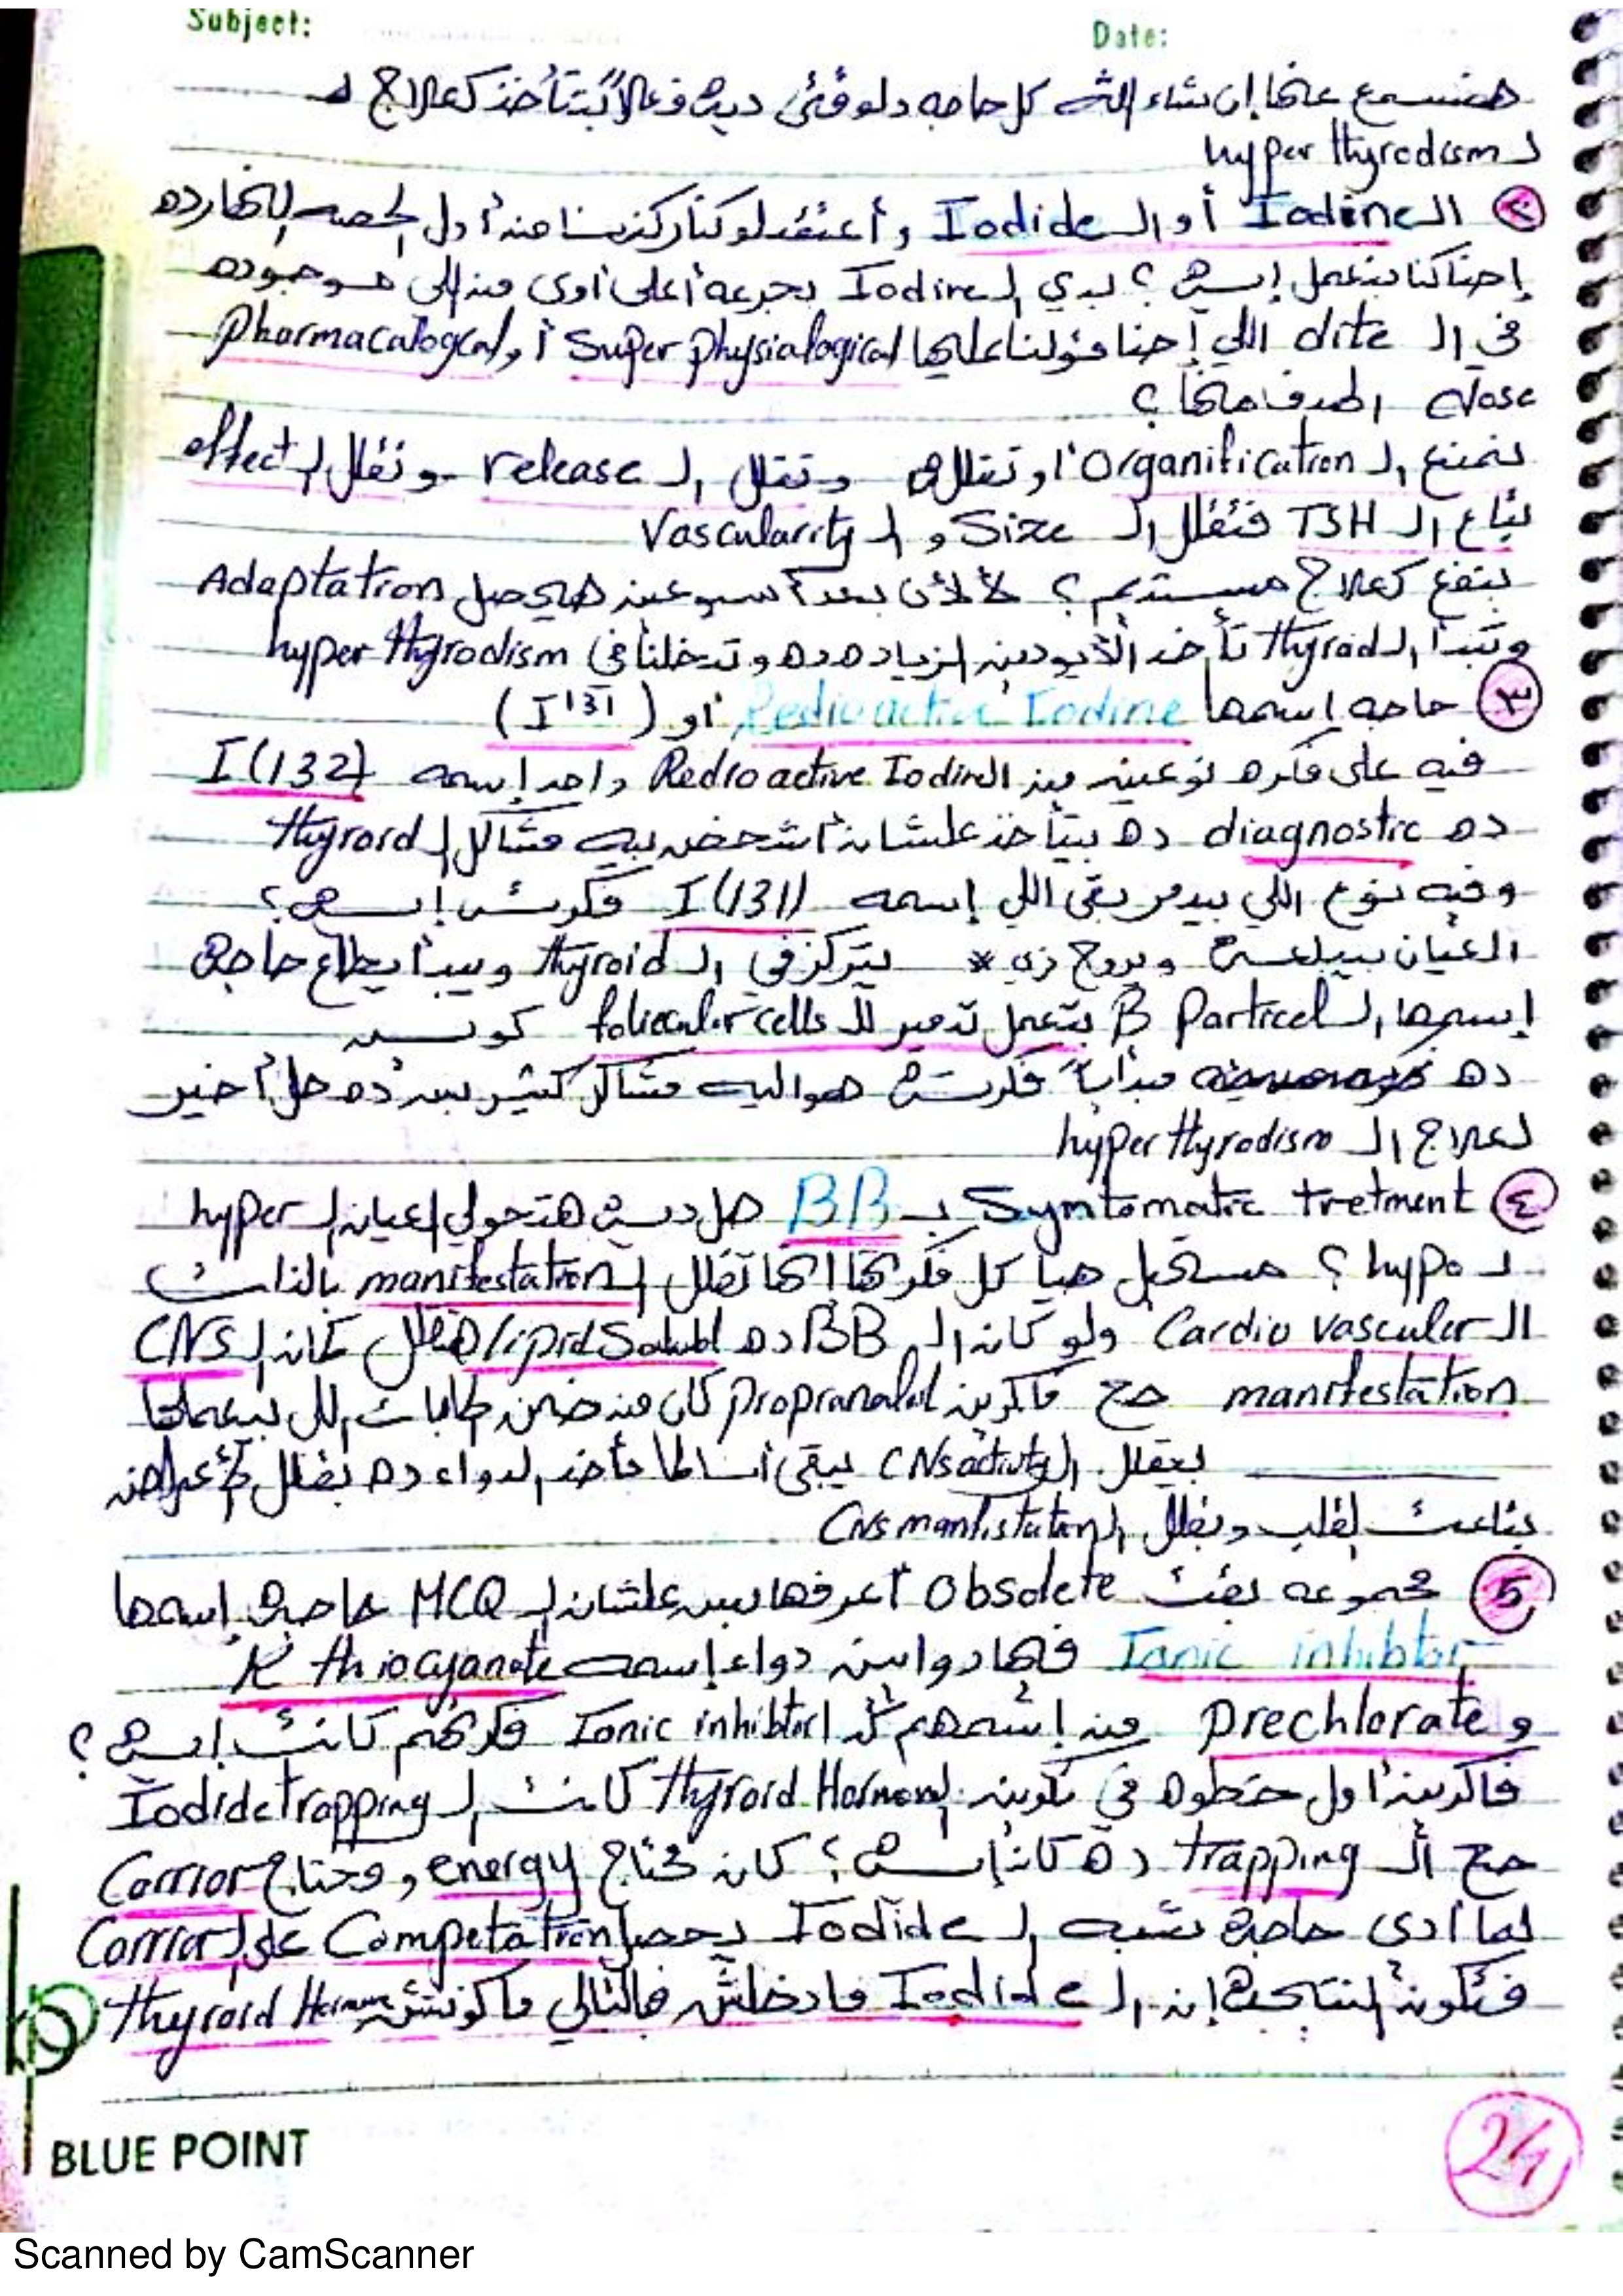 Subject: Date:
هنسمع عنها إن شاء الله كل حاجه دلوقتى ديه فعلاً بتتأخذ كعلاج لـ
لـ hyper thyrodism
٢ الـ Iodine أو الـ Iodide وأعتقد لو كنا ركزنا من أول الحصه النهارده
إحنا كنا بنعمل إيه ؟ بدي الـ Iodine بجرعه أعلى أوى من اللى موجوده
في الـ dite اللي إحنا قولنا عليها Super physialogical أو Pharmacalogcal
dose الهدف منها ؟
نمنع الـ Organification او تقللها وتقلل الـ release وتقلل الـ effect
بتاع الـ TSH فتقلل الـ Size و الـ Vascularity
ينفع كعلاج مستديم ؟ لأ لأن بعد أسبوعين هيحصل Adaptation
وتبدأ الـ thyroid تأخد الأيودين الزياده ده وتدخلنا في hyper thyrodism
٣ حاجه إسمها Redioactive Iodine أو ( I131 )
فيه على فكره نوعين من الـ Redioactive Iodine واحد إسمه I(132)
ده diagnostic ده بيتأخذ علشان أشخص بيه مشاكل الـ thyroid
وفيه نوع اللي بيدمر بقى اللي إسمه I(131) فكرته إيه ؟
العيان بيبلعه ويروح زى * يتركز في الـ thyroid ويبدأ يطلع حاجه
إسمها الـ B Particel بتعمل تدمير للـ foliecular cells كويس
ده مبدأياً فكرته هو اليه مشاكل كتير بس ده حل أخير
لعلاج الـ hyper thyrodism
٤ Symtomatic tretment بـ BB هل ديه هتحولي العيان الـ hyper
لـ hypo ؟ مستحيل هيا كل فكرتها إنها تقلل الـ manifestation بالذات
الـ Cardio vasculer ولو كان الـ BB ده lipid Solubl هيقلل كمان الـ CNS
manifestation صح فاكرين propranolol كان من ضمن الحاجات اللى بيعملها
بيقلل الـ CNS activity يبقى أنا لما هأخد الدواء ده يقلل الأعراض
بتاعت القلب ويقلل الـ CNS manfistation
5 مجموعه بقت Obsolete أعرفها بس علشان الـ MCQ حاجه إسمها
Ionic inhibitor فيها دوايين دواء إسمه K thiocyanate
و prechlorate من إسمهم كدا Ionic inhibitor فكرتهم كانت إيه ؟
فاكرين أول خطوه في تكوين Thyroid Hormone كانت الـ Iodide trapping
صح الـ trapping ده كان إيه ؟ كان محتاج energy ومحتاج Carrior
لما أدى حاجه شبه الـ Iodide يحصل Competation على الـ Carrior
فتكون النتيجه إن الـ Iodide مادخلش فبالتالي ماكونتش Thyroid Hormone
BLUE POINT
24
Scanned by CamScanner